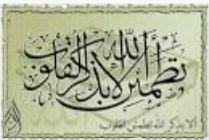 ألا بذكر الله تطمئن القلوب
ألا بذكر الله تطمئن القلوب